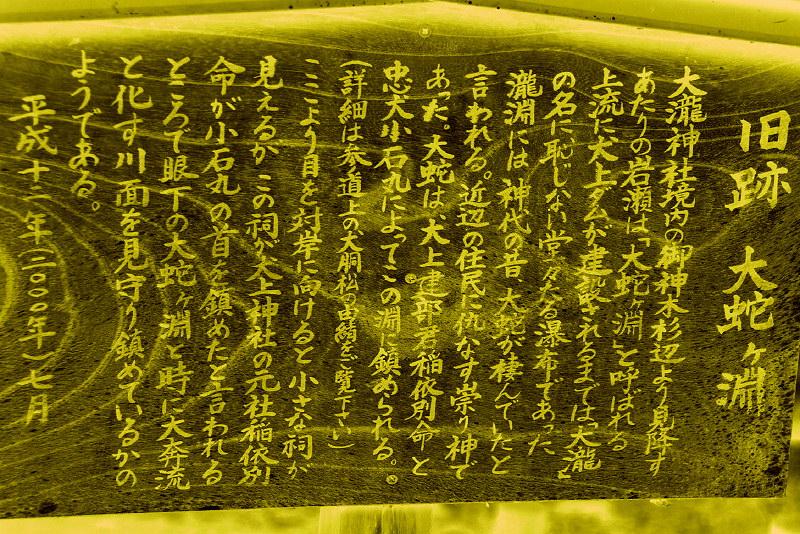 旧跡 大蛇ヶ淵
大瀧神社境内の御神木杉辺より見降す
あたりの岩瀬は「大蛇ヶ淵」と呼ばれる
上流に犬上ダムが建設されるまでは「大瀧」
の名に恥じない堂々たる瀑布であった
瀧淵には、神代の昔、大蛇が棲んでいたと
言われる。近辺の住民に仇なす崇り神で
あた。大蛇は、犬上建部君稲依別命と
忠犬小石丸によってこの淵に鎮められる。
(詳細は参道上の犬胴松の由緒をご覧下さい)
ここより目を対岸に向けると小さな祠が
見えるが この祠が犬上神社の元社稲依別
命が小石丸の首を鎮めたと言われる
ところで眼下の大蛇ヶ淵と時に大奔流
と化す川面を見守り鎮めているかの
ようである。
平成十二年(二〇〇〇年)七月